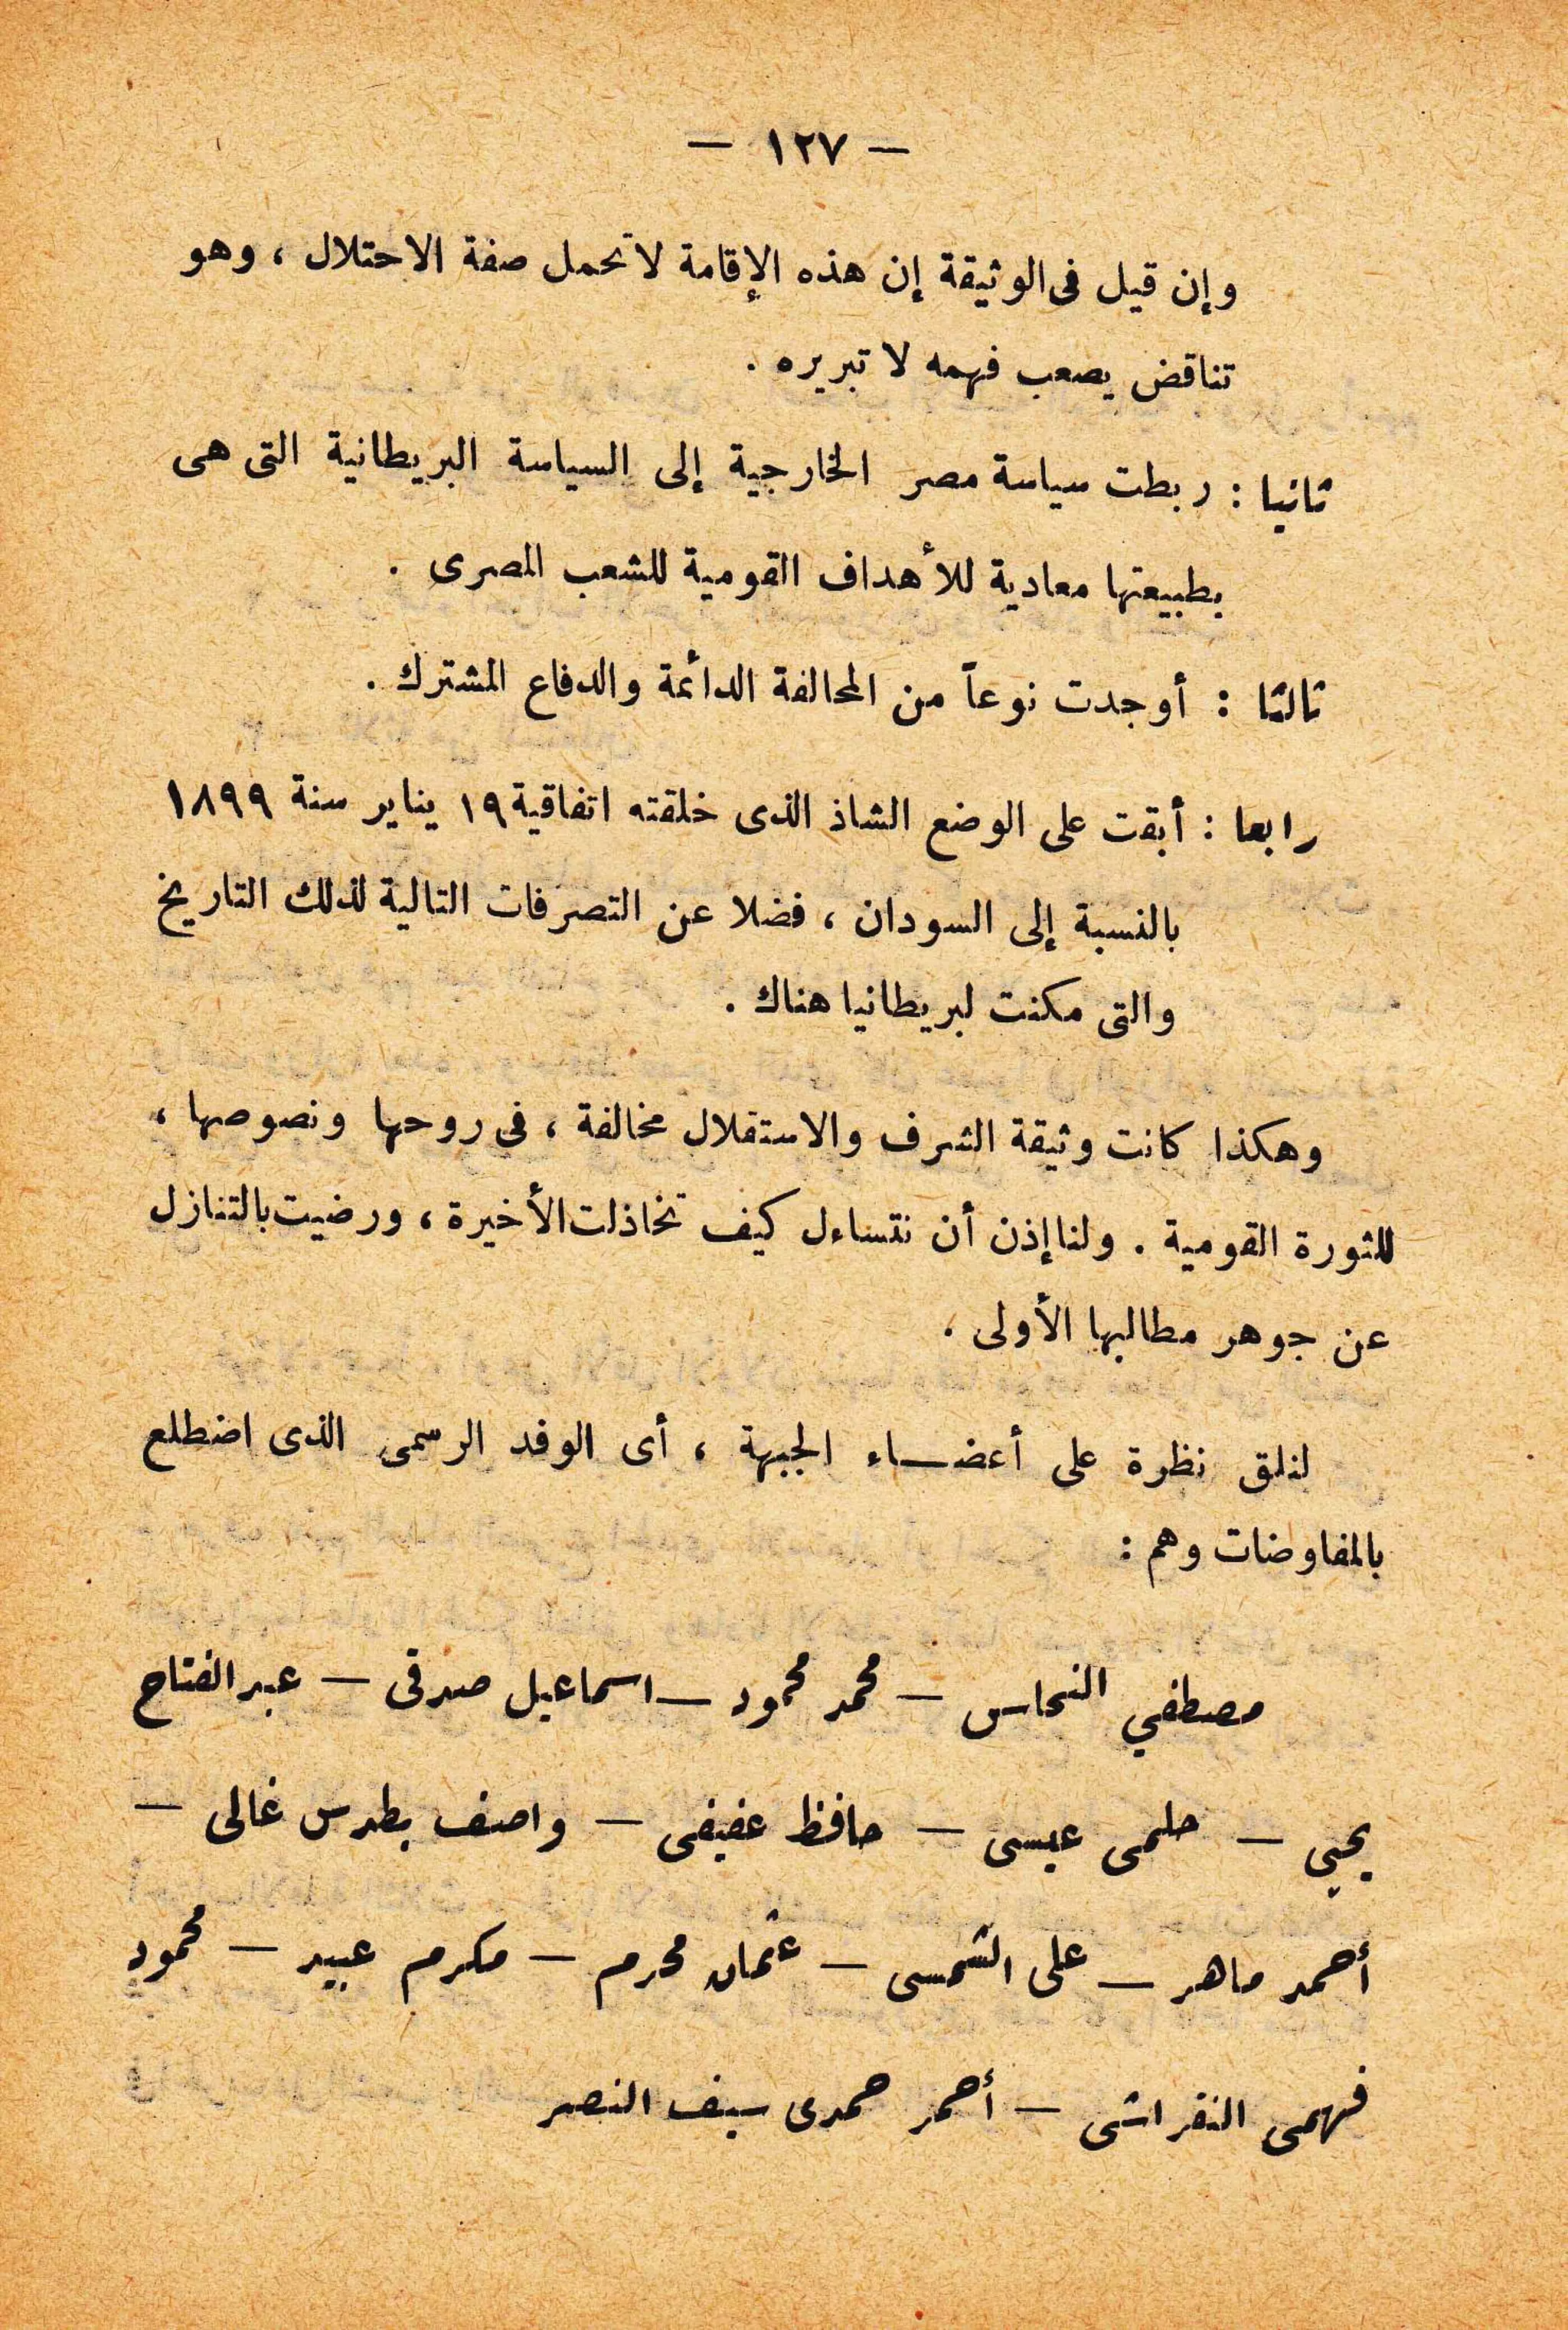 — ١٢٧ —
وإن قيل فى الوثيقة إن هذه الإقامة لا تحمل صفة الاحتلال ، وهو
تناقض يصعب فهمه لا تبريره .
ثانيا : ربطت سياسة مصر الخارجية إلى السياسة البريطانية التى هى
بطبيعتها معادية للأهداف القومية للشعب المصرى .
ثالثا : أوجدت نوعاً من المحالفة الدائمة والدفاع المشترك .
رابعا : أبقت على الوضع الشاذ الذى خلقته اتفاقية ١٩ يناير سنة ١٨٩٩
بالنسبة إلى السودان ، فضلا عن التصرفات التالية لذلك التاريخ
والتى مكنت لبريطانيا هناك .
وهكذا كانت وثيقة الشرف والاستقلال مخالفة ، فى روحها ونصوصها ،
للثورة القومية . ولنا إذن أن نتساءل كيف تخاذلت الأخيرة ، ورضيت بالتنازل
عن جوهر مطالبها الأولى .
لنلق نظرة على أعضـــاء الجبهة ، أى الوفد الرسمى الذى اضطلع
بالمفاوضات وهم :
مصطفي النحاس — محمد محمود — اسماعيل صدقى — عبد الفتاح
يحيي — حلمى عيسى — حافظ عفيفى — واصف بطرس غالى —
أحمد ماهر — على الشمسى — عثمان محرم — مكرم عبيد — محمود
فهمى النقراشى — أحمد حمدى سيف النصر